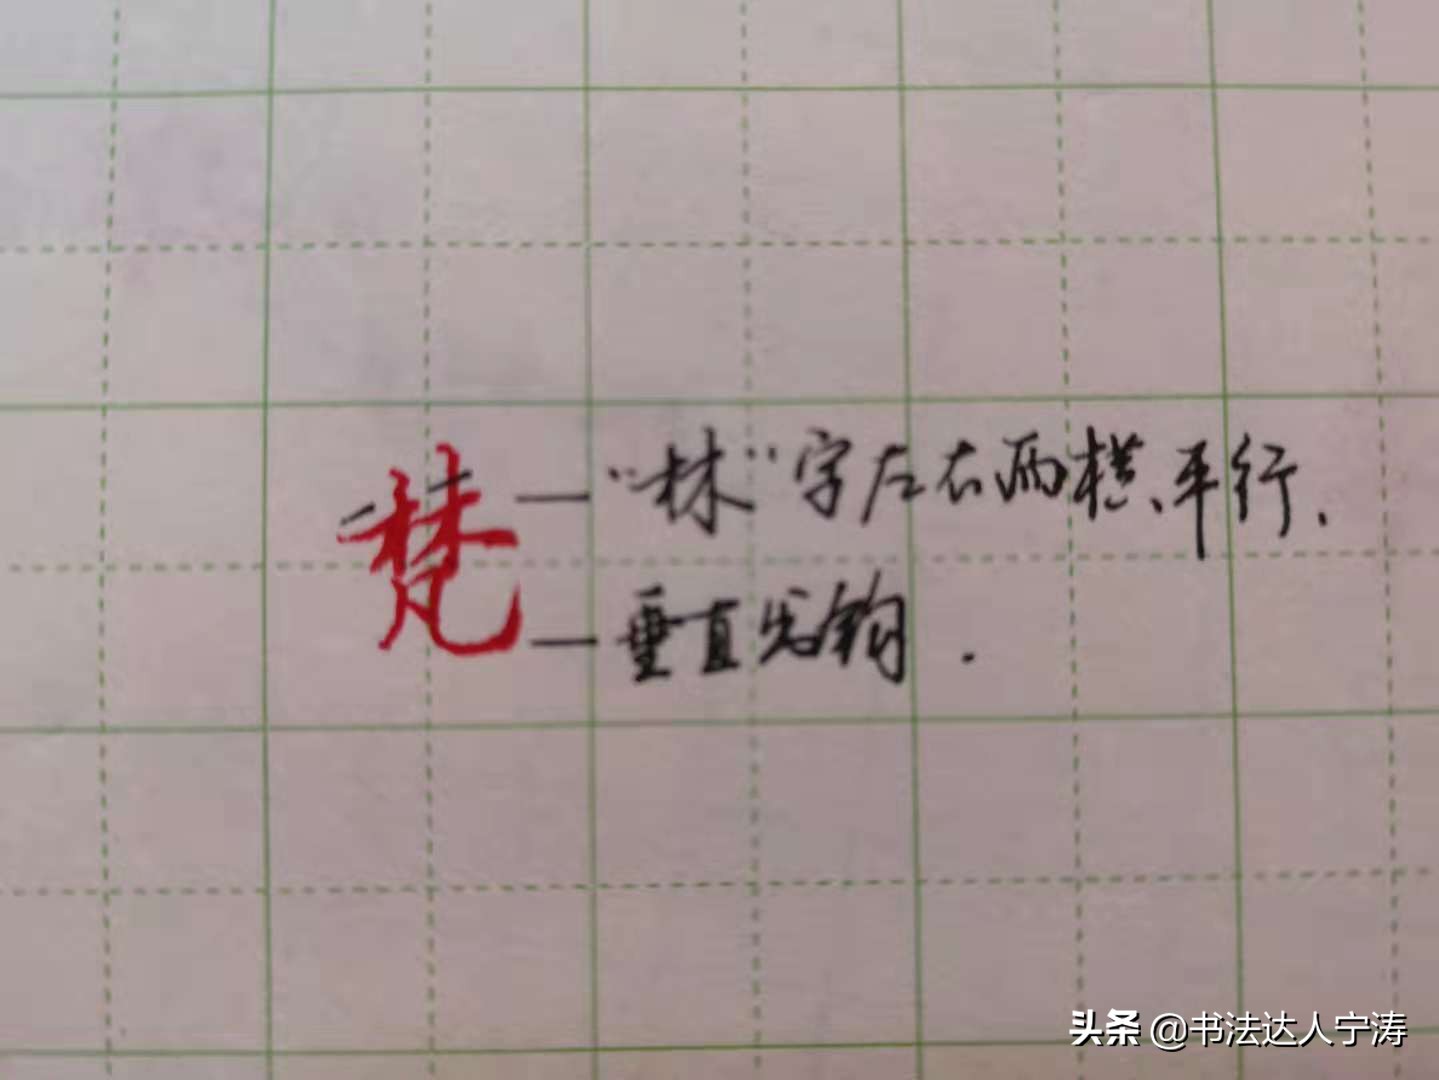 梵
"林"字左右两横、平行.
垂直出钩.
头条 @书法达人宁涛